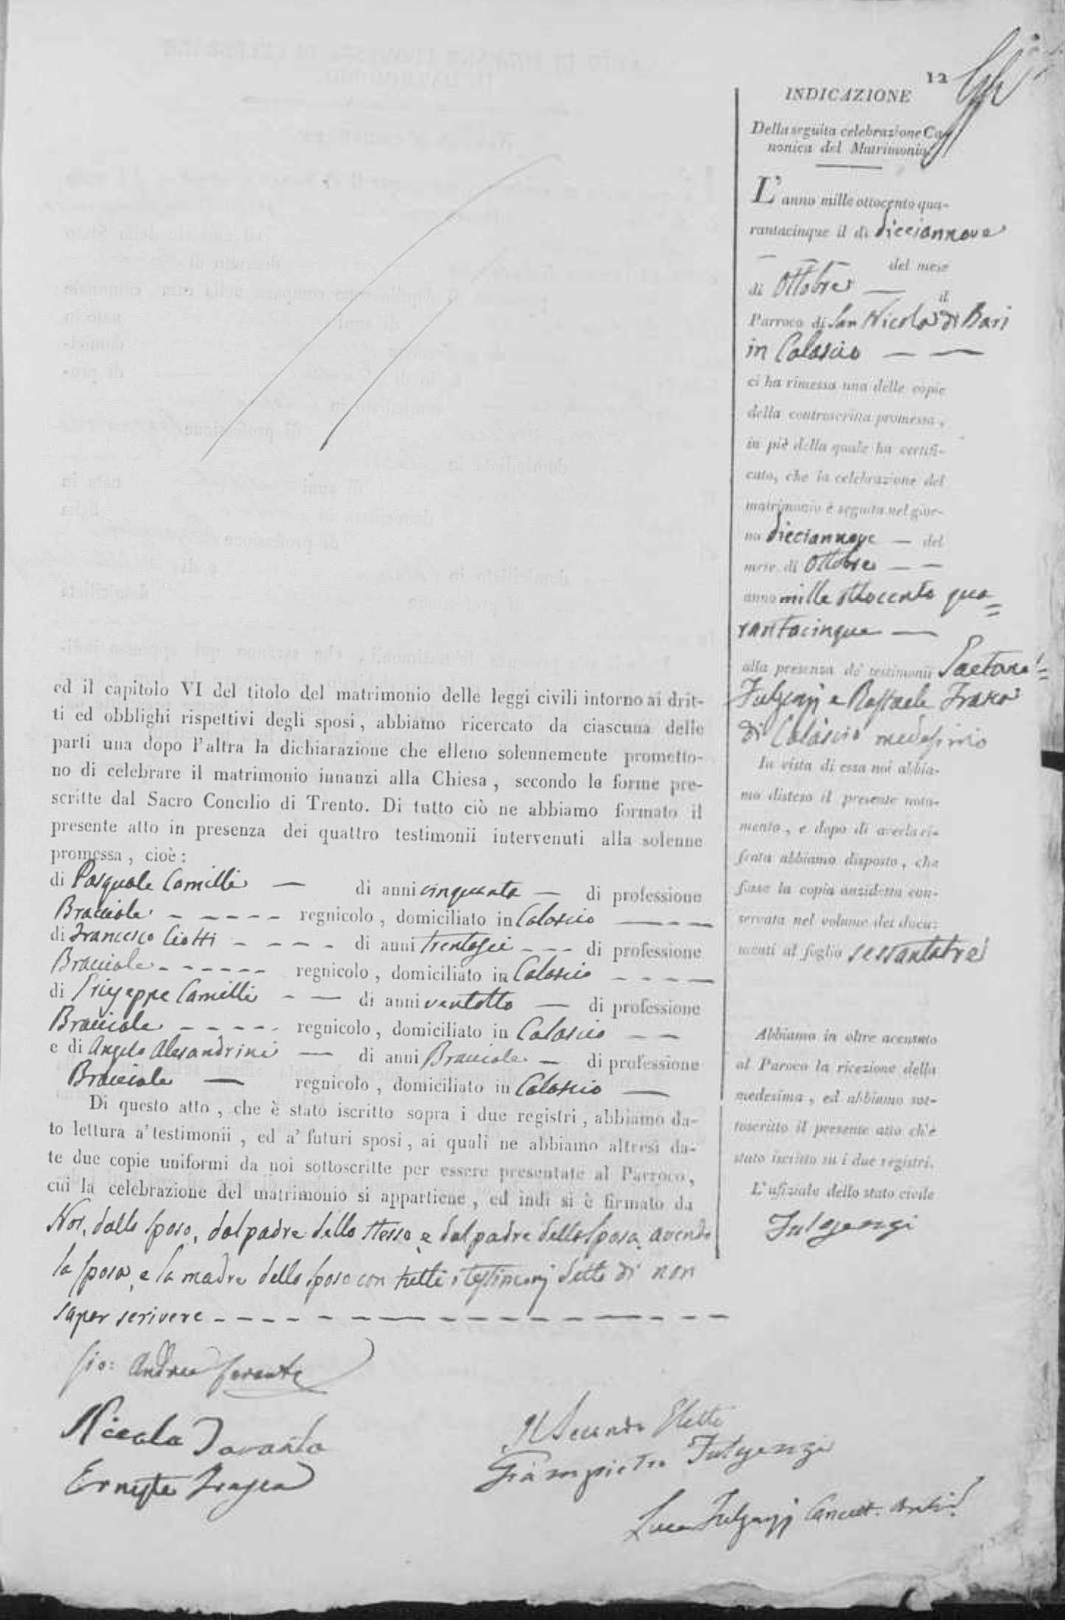 12
INDICAZIONE
Della seguita celebrazione Ca-
nonica del Matrimonio
L'anno mille ottocento qua-
rantacinque il dì dieciannove
del mese
di Ottobre il
Parroco di San Nicola di Bari
in Calascio
ci ha rimessa una delle copie
della controscritta promessa,
in piè della quale ha certifi-
cato, che la celebrazione del
matrimonio è seguita nel gior-
no dieciannove del
mese di Ottobre
anno mille ottocento qua=
rantacinque
alla presenza de' testimonii Gaetano
Fulgenzj e Raffaele Frasca
di Calascio medesimo
In vista di essa noi abbia-
mo disteso il presente nota-
mento, e dopo di averla ci-
frata abbiamo disposto, che
fosse la copia anzidetta con-
servata nel volume dei docu-
menti al foglio sessantatre
Abbiamo in oltre accusato
al Paroco la ricezione della
medesima, ed abbiamo sot-
toscritto il presente atto ch'è
stato iscritto su i due registri.
L'ufiziale dello stato civile
Fulgenzi
ed il capitolo VI del titolo del matrimonio delle leggi civili intorno ai drit-
ti ed obblighi rispettivi degli sposi, abbiamo ricercato da ciascuna delle
parti una dopo l'altra la dichiarazione che elleno solennemente prometto-
no di celebrare il matrimonio innanzi alla Chiesa, secondo le forme pre-
scritte dal Sacro Concilio di Trento. Di tutto ciò ne abbiamo formato il
presente atto in presenza dei quattro testimonii intervenuti alla solenne
promessa, cioè:
di Pasquale Camilli — di anni cinquanta — di professione
Bracciale - - - - - regnicolo, domiciliato in Calascio
di Francesco Ciotti - - - - di anni trentasei - - - di professione
Bracciale - - - - - - regnicolo, domiciliato in Calascio - - - - -
di Giuseppe Camilli - — di anni ventotto — di professione
Bracciale - - - - - regnicolo, domiciliato in Calascio — —
e di Angelo Alesandrini — di anni Bracciale — di professione
Bracciale — regnicolo, domiciliato in Calascio —
Di questo atto, che è stato iscritto sopra i due registri, abbiamo da-
to lettura a' testimonii, ed a' futuri sposi, ai quali ne abbiamo altresì da-
te due copie uniformi da noi sottoscritte per essere presentate al Parroco,
cui la celebrazione del matrimonio si appartiene, ed indi si è firmato da
Noi, dallo sposo, dal padre dello stesso, e dal padre della sposa, avendo
la sposa, e la madre dello sposo con tutti i testimonj detto di non
saper scrivere
Gio: Andrea
Nicola Taranta
Ernesto Frasca
Il Secondo Eletto
Giampietro Fulgenzi
Luca Fulgenzj Cancell.